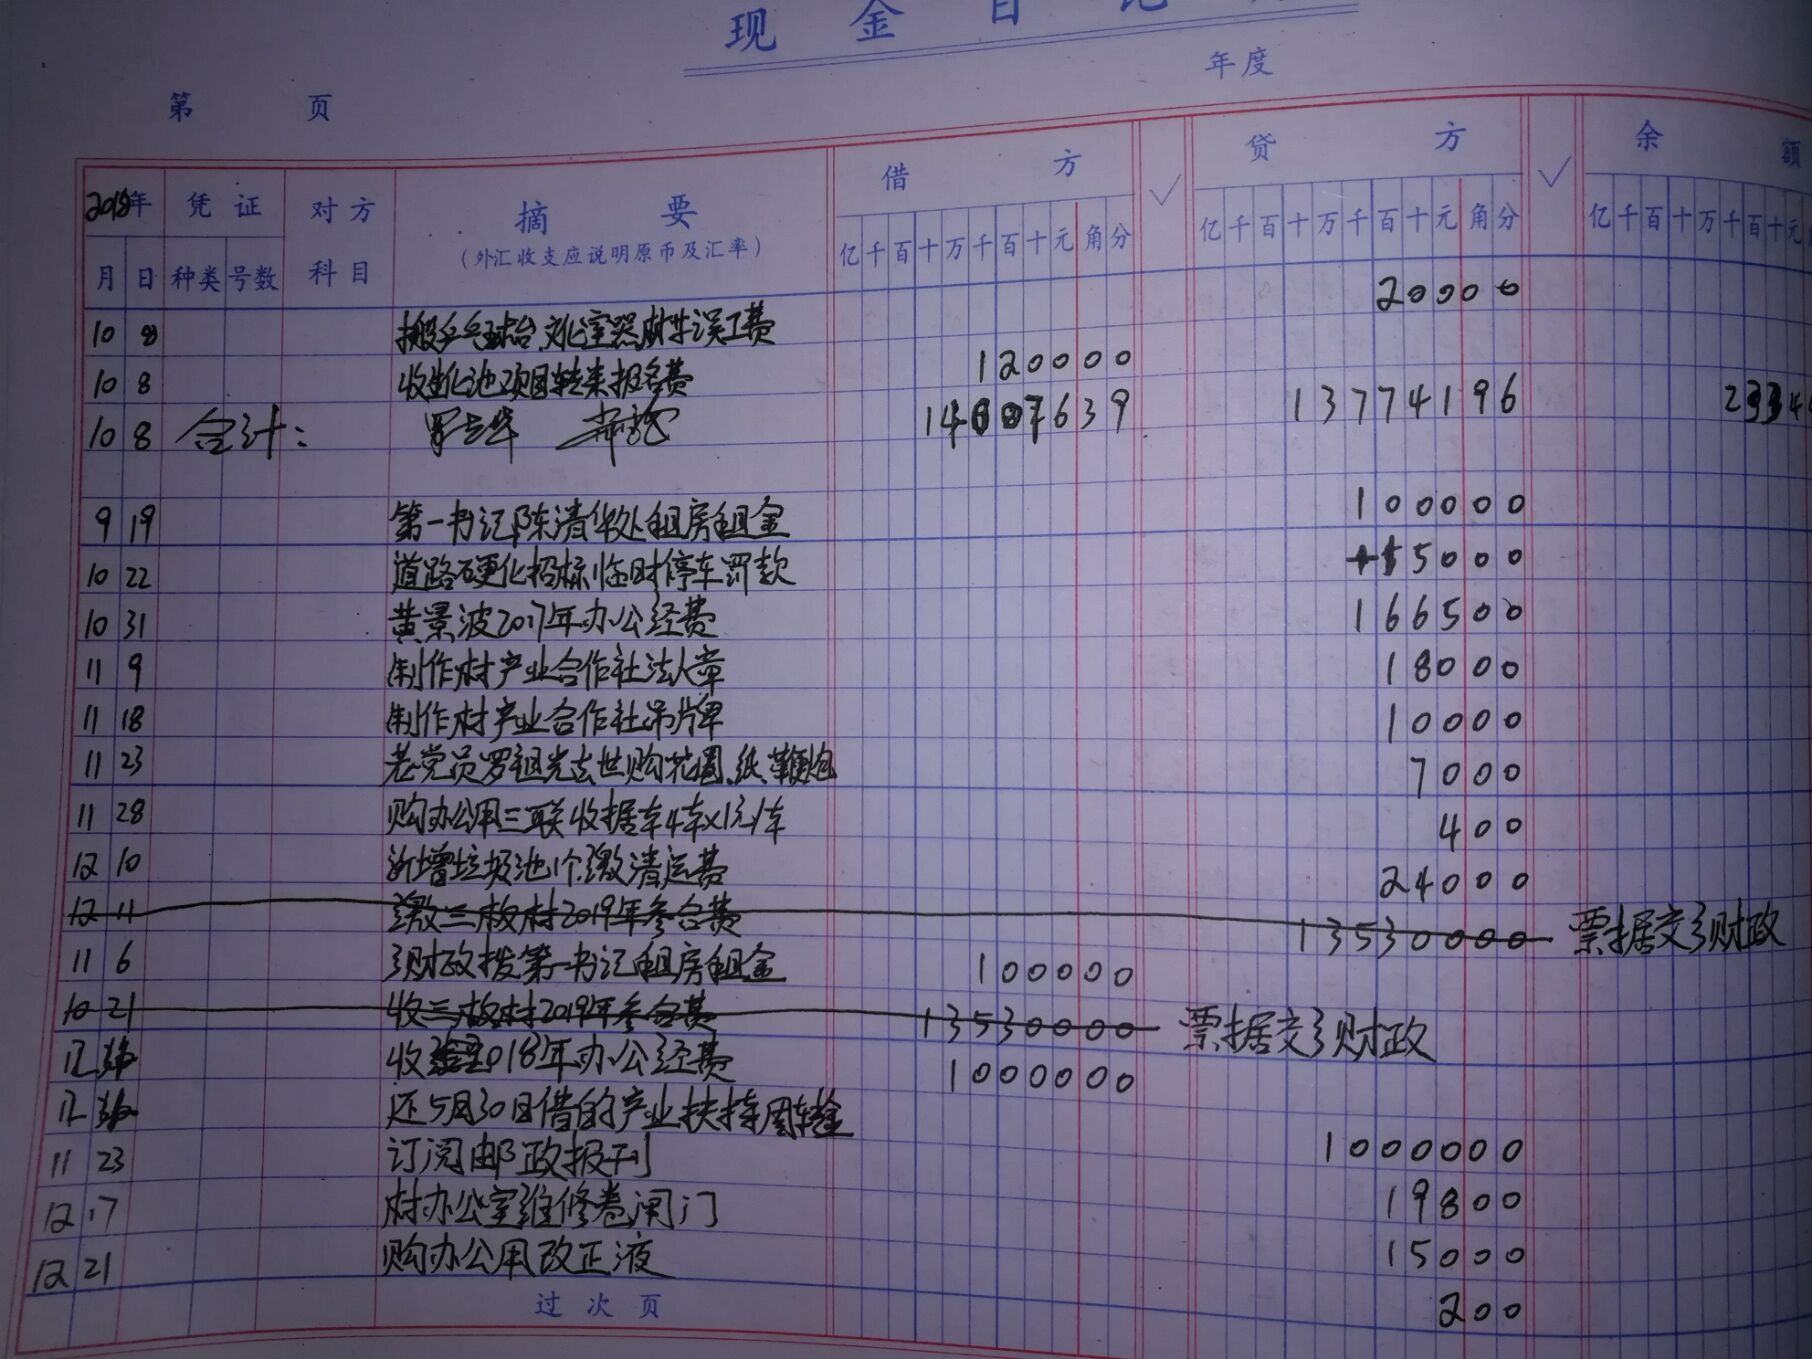 现金日记
年度
第 页
2018年 凭证 对方 摘要 借方 ✓ 贷方 ✓ 余额
(外汇收支应说明原币及汇率)
月 日 种类 号数 科目 亿千百十万千百十元角分 亿千百十万千百十元角分 亿千百十万千百十元
10 8 搬乒乓球台、文化室器材等误工费 20000
10 8 收生化池项目转来报名费 120000
10 8 合计: 13774196
9 19 第一书记陈清华处租房租金 100000
10 22 道路硬化招标临时停车罚款 15000
10 31 黄景波2017年办公经费 166500
11 9 制作村产业合作社法人章 18000
11 18 制作村产业合作社吊牌 10000
11 23 老党员罗祖光去世购花圈、纸、鞭炮 7000
11 28 购办公用三联收据本4本×1元/本 400
12 10 新增垃圾池1个缴清运费 24000
12 11 缴三枚村2019年参合费 13530000 票据交乡财政
11 6 乡财政拨第一书记租房租金 100000
10 21 收三枚村2019年参合费 13530000 票据交乡财政
12 收2018年办公经费 1000000
12 还5月30日借的产业扶持周转金 1000000
11 23 订阅邮政报刊 19800
12 17 村办公室维修卷闸门 15000
12 21 购办公用改正液 200
过次页